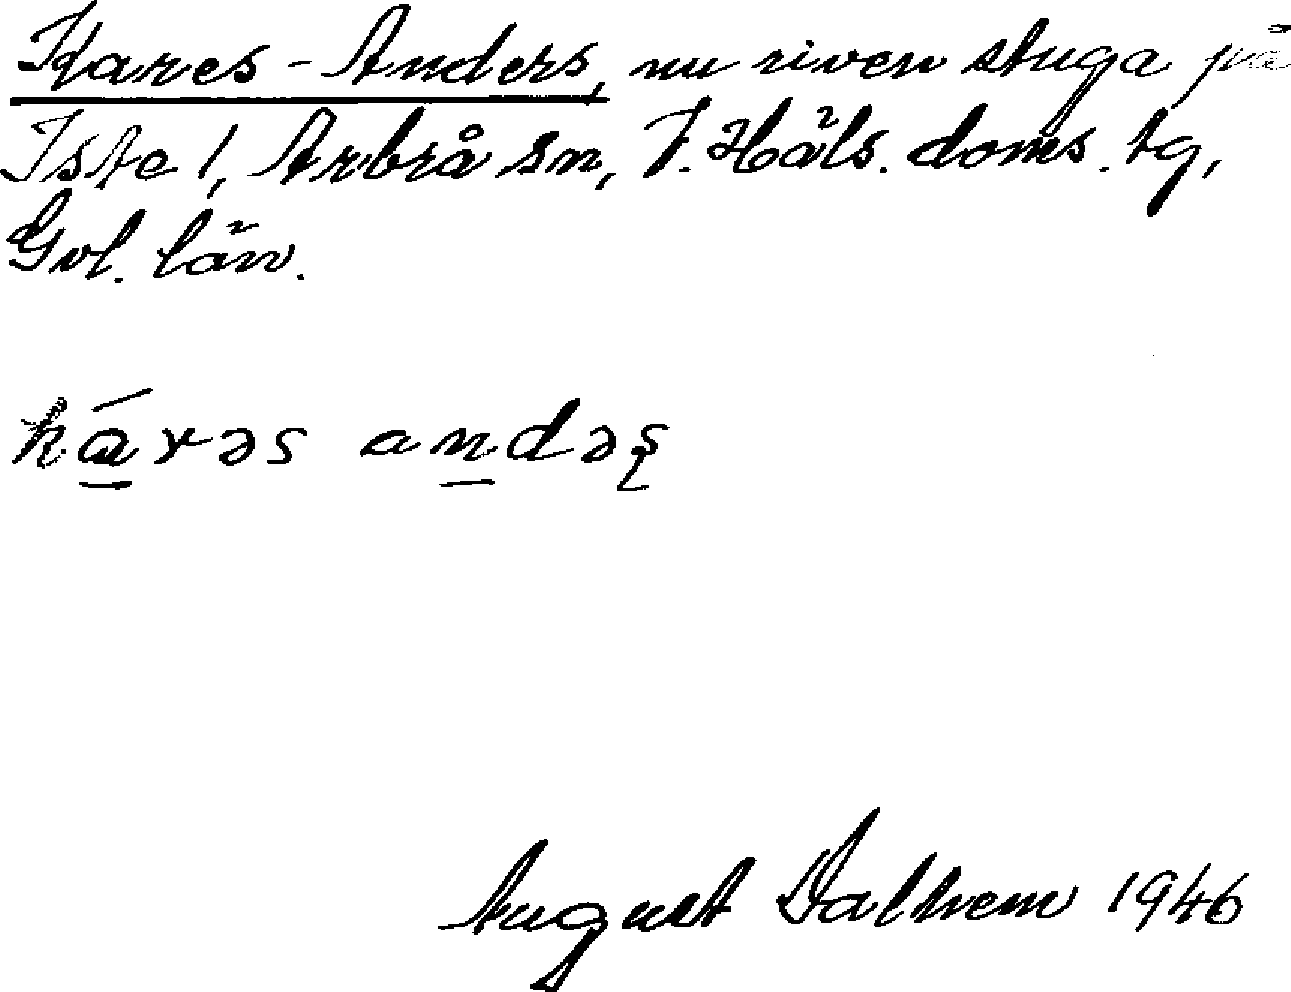 Kares-Anders, nu riven stuga på
Iste 1, Arbrå sn, V. Häls. doms. tg,
Gvl. län.
kárəs andəʂ
August Dalhem 1946